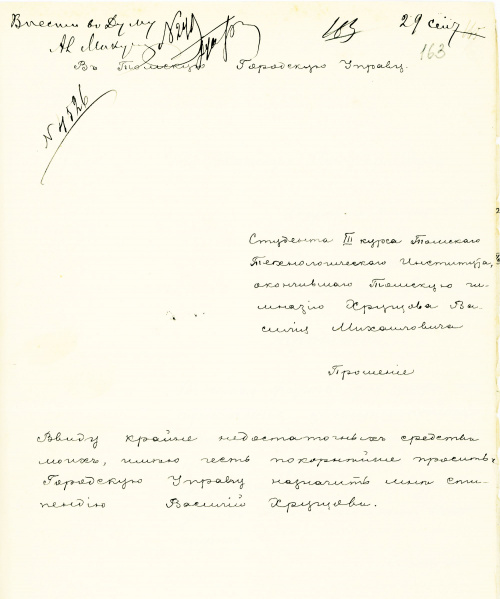 Внести въ Думу
29 сент
163
163
Въ Томскую Городскую Управу.
№ 4526
Студента III курса Томскаго
Технологическаго Института,
окончившаго Томскую ги-
мназію Хрущова Ва-
силія Михаиловича
Прошеніе
Ввиду крайне недостаточныхъ средствъ
моихъ, имѣю честь покорнѣйше просить
Городскую Управу назначить мнѣ сти-
пендію Василій Хрущовъ.